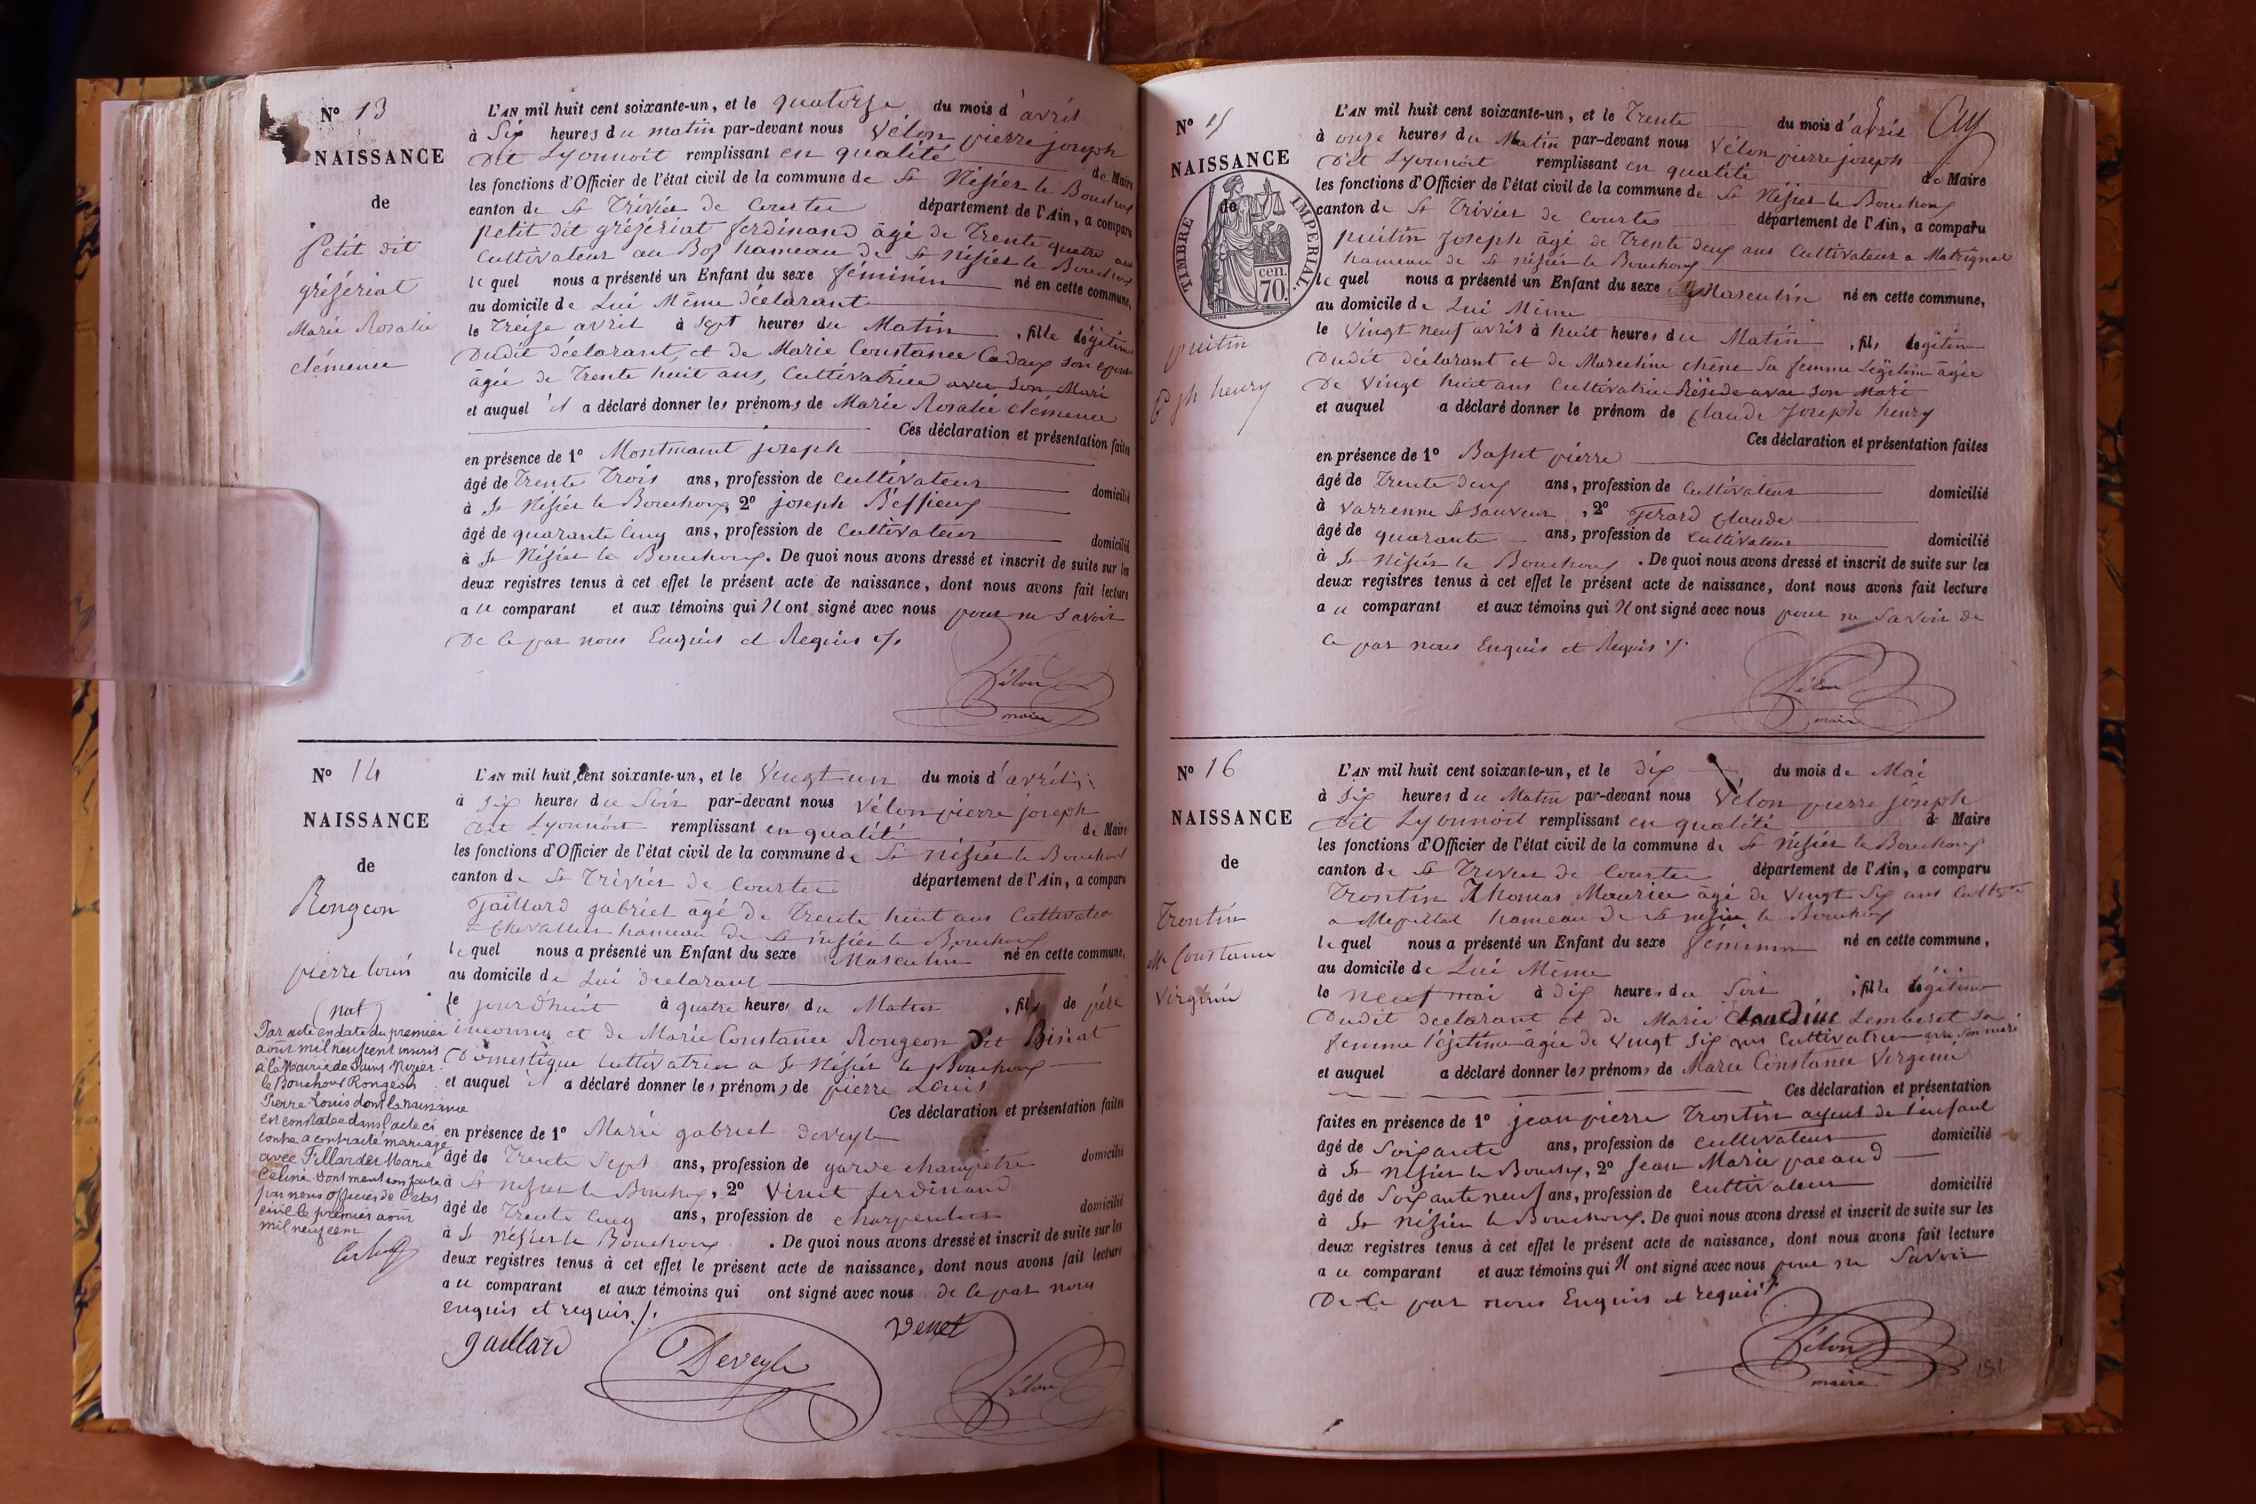 N° 13
NAISSANCE
de
Petit dit
grézériat
Marie Rosalie
clémence
L'AN mil huit cent soixante-un, et le quatorze du mois d'avril
à Six heures du matin par-devant nous Vélon pierre joseph
Dit Lyonnoit remplissant en qualité de Maire
les fonctions d'Officier de l'état civil de la commune de St Nizier le Bouchoux
canton de St Trivier de Courtes département de l'Ain, a comparu
petit dit grézériat ferdinand âgé de Trente quatre ans
Cultivateur au Bos hameau de St nizier le Bouchoux
lequel nous a présenté un Enfant du sexe féminin né en cette commune,
au domicile de Lui Même déclarant
le Treize avril à Sept heures du Matin, fille légitime
Dudit déclarant, et de Marie Constance Cadaux son épouse
âgée de Trente huit ans, Cultivatrice avec Son Mari
et auquel il a déclaré donner les prénoms de Marie Rosalie clémence
Ces déclaration et présentation faites
en présence de 1° Montmaint joseph
âgé de Trente Trois ans, profession de Cultivateur domicilié
à St Nizier le Bouchoux, 2° joseph Beffieux
âgé de quarante Cinq ans, profession de Cultivateur domicilié
à St Nizier le Bouchoux. De quoi nous avons dressé et inscrit de suite sur les
deux registres tenus à cet effet le présent acte de naissance, dont nous avons fait lecture
au comparant et aux témoins qui N'ont signé avec nous pour ne Savoir
De Ce par nous Enquis et Requis ./.
Vélon
maire
N° 14
NAISSANCE
de
Rongeon
pierre louis
(nat)
Par acte en date du premier
août mil neuf cent inscrit
à la Mairie de Saint Nizier
le Bouchoux Rongeon
Pierre Louis dont la naissance
est constatée dans l'acte ci
contre a contracté mariage
avec Fillardet Marie
Célina Dont mention faite
par nous officier de l'état
civil le premier août
mil neuf cent
L'AN mil huit cent soixante-un, et le Vingt un du mois d'avril
à Six heures du Soir par-devant nous Vélon pierre joseph
Dit Lyonnoit remplissant en qualité de Maire
les fonctions d'Officier de l'état civil de la commune de St nizier le Bouchoux
canton de St Trivier de Courtes département de l'Ain, a comparu
Gaillard gabriel âgé de Trente huit ans Cultivateur
à Chevallier hameau de St nizier le Bouchoux
lequel nous a présenté un Enfant du sexe Masculin né en cette commune,
au domicile de Lui déclarant
le jour d'huit à quatre heures du Matin, fils de père
inconnu et de Marie Constance Rongeon Dit Bisiat
Domestique Cultivatrice a St Nizier le Bouchoux
et auquel il a déclaré donner les prénoms de pierre Louis
Ces déclaration et présentation faites
en présence de 1° Marie gabriel deveyle
âgé de Trente Sept ans, profession de garde champêtre domicilié
à St nizier le Bouchoux, 2° Vinet ferdinand
âgé de Trente Cinq ans, profession de charpentier domicilié
à St Nizier le Bouchoux. De quoi nous avons dressé et inscrit de suite sur les
deux registres tenus à cet effet le présent acte de naissance, dont nous avons fait lecture
au comparant et aux témoins qui ont signé avec nous de Ce par nous
enquis et requis ./.
gaillard
Deveyle
Venet
Vélon
N° 15
NAISSANCE
de
TIMBRE IMPERIAL
70 cen.
puitin
Cde jph henry
L'AN mil huit cent soixante-un, et le Trente du mois d'avril
à onze heures du Matin par-devant nous Vélon pierre joseph
Dit Lyonnoit remplissant en qualité de Maire
les fonctions d'Officier de l'état civil de la commune de St Nizier le Bouchoux
canton de St Trivier de Courtes département de l'Ain, a comparu
puitin Joseph âgé de Trente deux ans Cultivateur a Matrignat
hameau de St nizier le Bouchoux
lequel nous a présenté un Enfant du sexe Masculin né en cette commune,
au domicile de Lui Même
le Vingt neuf avril à huit heures du Matin, fils légitime
Dudit déclarant et de Marceline chêne Sa femme Légitime âgée
De Vingt huit ans Cultivatrice Réside avec Son Mari
et auquel a déclaré donner le prénom de Claude Joseph henry
Ces déclaration et présentation faites
en présence de 1° Basset pierre
âgé de Trente deux ans, profession de Cultivateur domicilié
à Varrenne St Sauveur, 2° Ferard Claude
âgé de quarante ans, profession de Cultivateur domicilié
à St Nizier le Bouchoux. De quoi nous avons dressé et inscrit de suite sur les
deux registres tenus à cet effet le présent acte de naissance, dont nous avons fait lecture
au comparant et aux témoins qui N'ont signé avec nous pour ne Savoir de
Ce par nous Enquis et Requis ./.
Vélon
maire
N° 16
NAISSANCE
de
Trontin
Mie Constance
Virginie
L'AN mil huit cent soixante-un, et le dix du mois de Mai
à Six heures du Matin par-devant nous Vélon pierre joseph
Dit Lyonnoit remplissant en qualité de Maire
les fonctions d'Officier de l'état civil de la commune de St Nizier le Bouchoux
canton de St Trivier de Courtes département de l'Ain, a comparu
Trontin Thomas Maurice âgé de Vingt Six ans Cultiv
a Mépillat hameau de St nizier le Bouchoux
lequel nous a présenté un Enfant du sexe féminin né en cette commune,
au domicile de Lui Même
le neuf mai à dix heures du Soir, fille légitime
Dudit déclarant et de Marie Claudine Lemberet Sa
femme légitime âgée de Vingt Six ans Cultivatrice avec Son mari
et auquel a déclaré donner les prénoms de Marie Constance Virginie
Ces déclaration et présentation
faites en présence de 1° jean pierre Trontin ayeul de l'enfant
âgé de Soixante ans, profession de Cultivateur domicilié
à St Nizier le Bouchoux, 2° Jean Marie pacaud
âgé de Soixante neuf ans, profession de Cultivateur domicilié
à St Nizier le Bouchoux. De quoi nous avons dressé et inscrit de suite sur les
deux registres tenus à cet effet le présent acte de naissance, dont nous avons fait lecture
au comparant et aux témoins qui N'ont signé avec nous pour ne Savoir
De Ce par nous Enquis et requis ./.
Vélon
maire